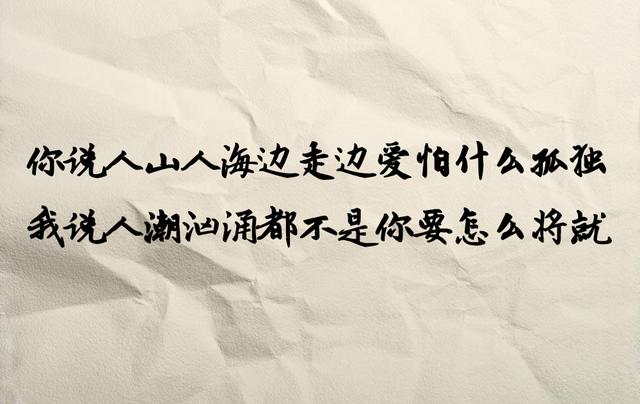 你说人山人海边走边爱怕什么孤独
我说人潮汹涌都不是你要怎么将就